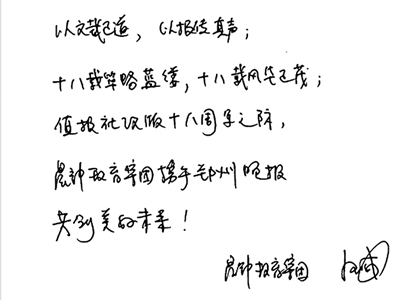 以文载道，以报传真声；
十八载筚路蓝缕，十八载风华正茂；
值报社改版十八周年之际，
晨钟教育集团携手郑州晚报
共创美好未来！
晨钟教育集团